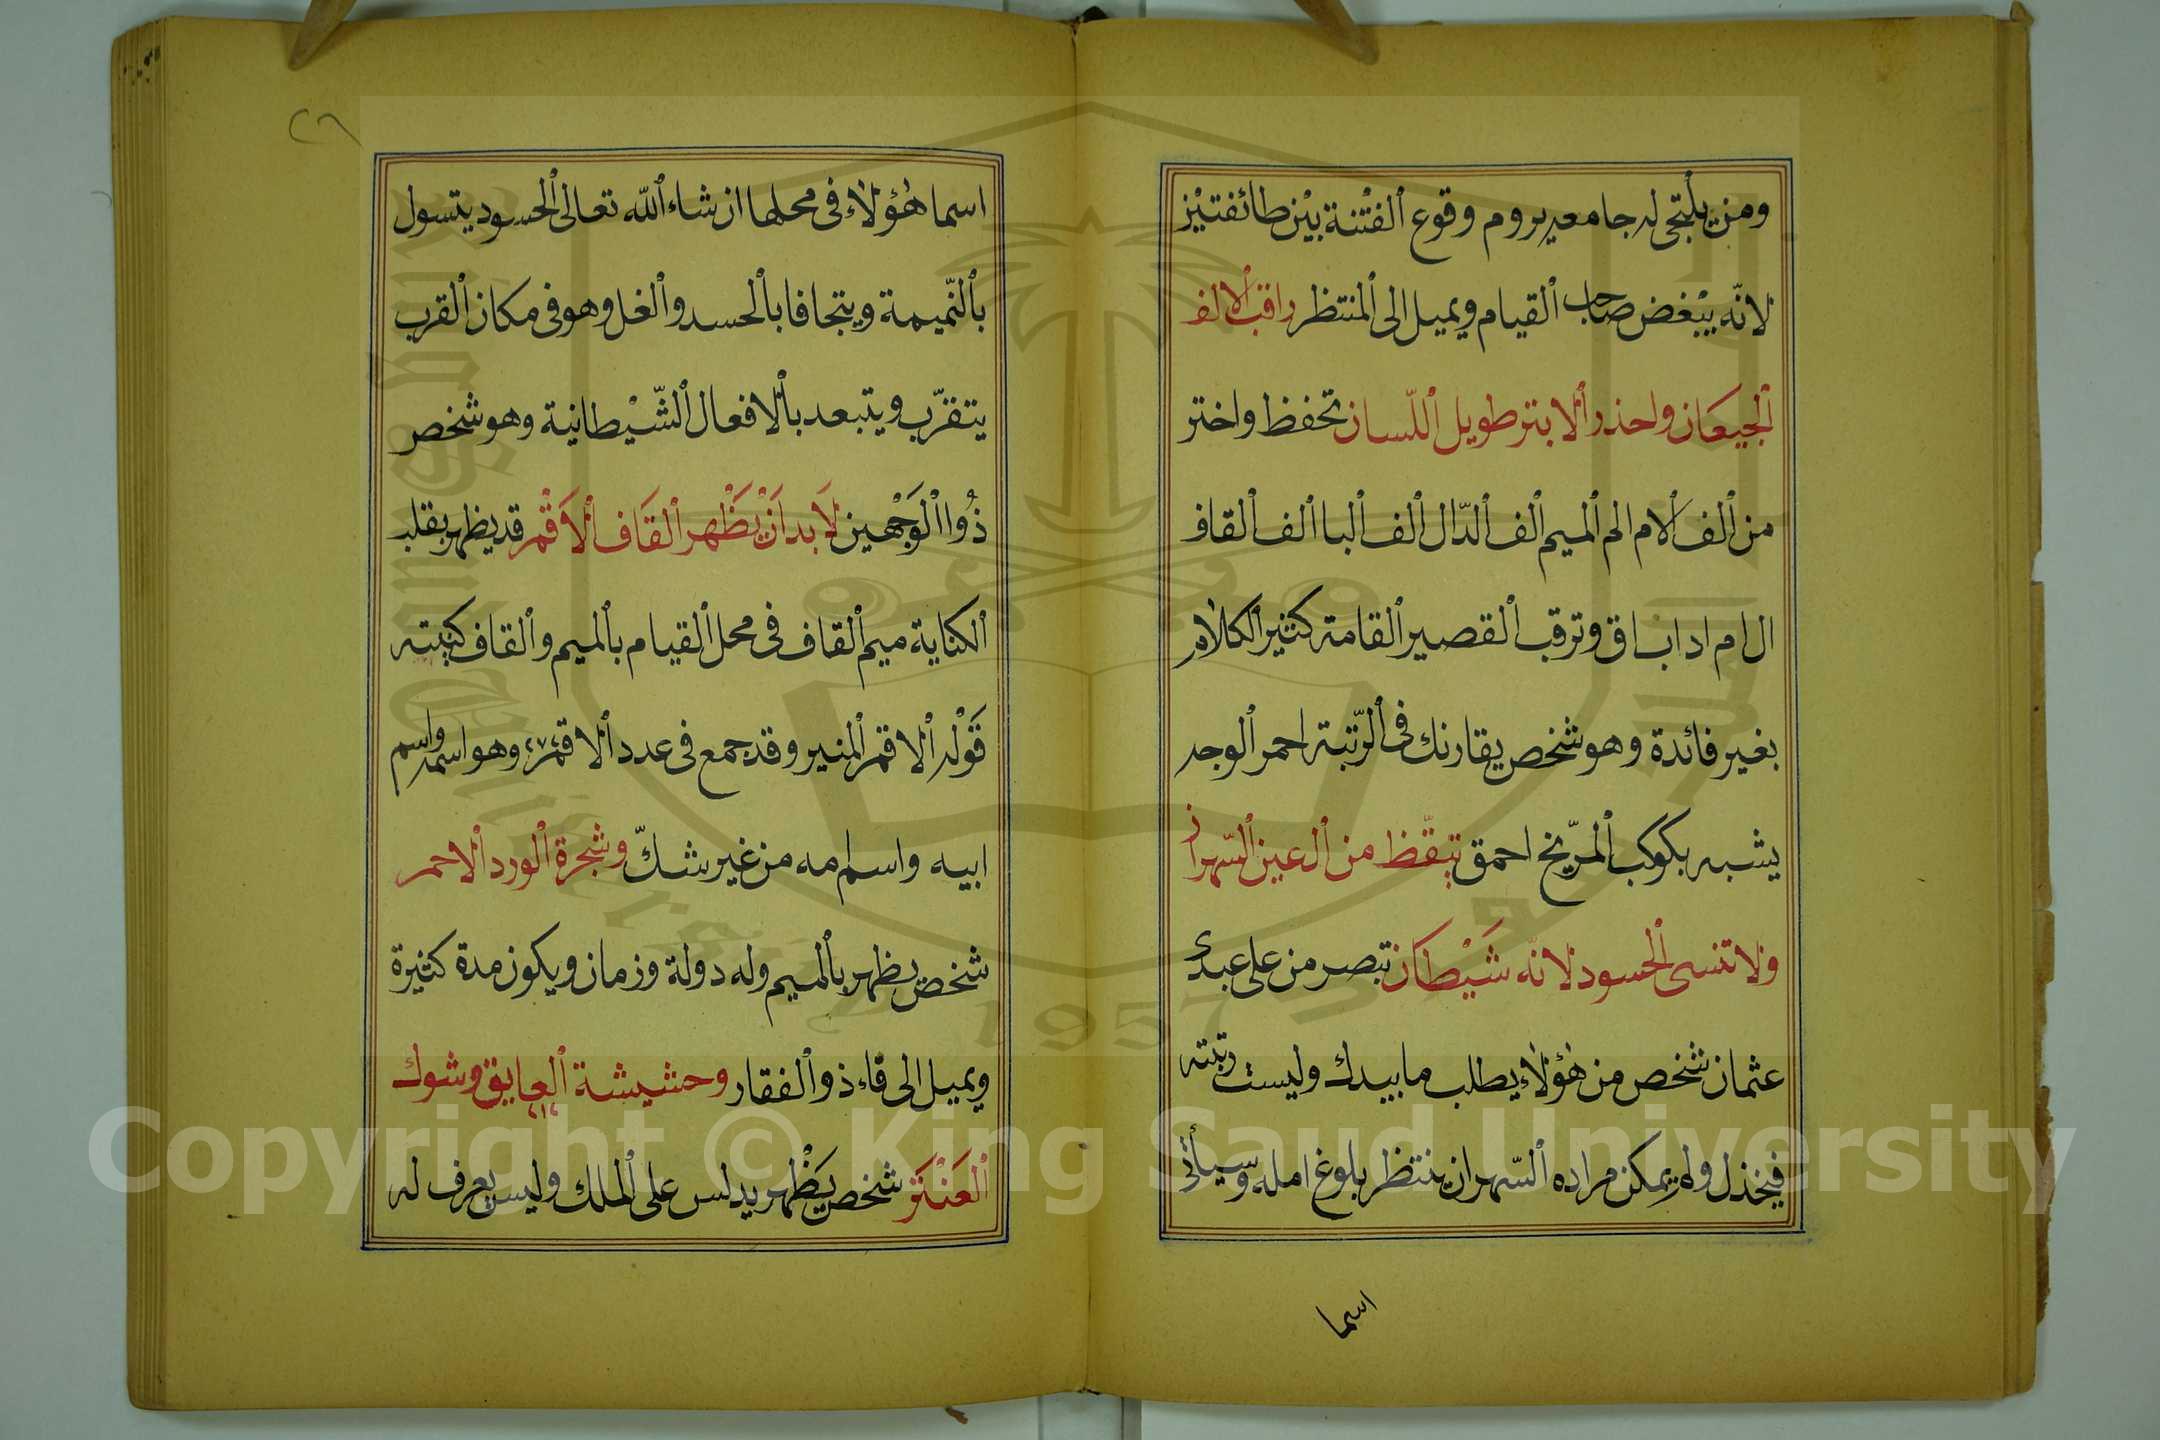 ومن يلتجى له جامعه يروم وقوع ٱلفتْنة بيْن طائفتيْن
لانّه يبْغض صاحب ٱلقيام ويميل الى ٱلمنتظر راقب ٱلالف
ٱلجيعَان واحذر ٱلابتر طويل ٱللّسان تحفظ واختر
من ٱلف ٱلام الم ٱلميم ٱلف ٱلدّال ٱلف ٱلبا ٱلف ٱلقاف
ال ام اد اب اق وترقب ٱلقصير ٱلقامة كثير ٱلكلام
بغير فائدة وهو شخص يقارنك فى ٱلرّتبة احمر ٱلوجه
يشبه بكوكب ٱلمرّيخ احمق تيقّظ من ٱلعين ٱلسّهران
ولا تنسى ٱلحسود لانّه شَيْطان تبصر من على عبدى
عثمان شخص من هٰؤلاء يطلب ما بيدك وليست رتبته
فيخذل ولم يمكن مراده ٱلسّهران ينتظر بلوغ امله وسيأتى
اسما
٢٦
اسما هٰؤلاء فى محلها ان شاء ٱلله تعالى ٱلحسود يتسول
بٱلنّميمة ويتجافا بٱلحسد وٱلغل وهو فى مكان ٱلقرب
يتقرّب ويتبعد بٱلافعال ٱلشّيْطانية وهو شخص
ذُوا ٱلوَجْهين لَابد اَنْ يَظْهر ٱلقَاف ٱلاَقْمر قد يظهر بقلب
ٱلكناية ميم ٱلقاف فى محل ٱلقيام بٱلميم وٱلقاف كنيته
قَوْله ٱلاقمر ٱلمنير وقد جمع فى عدد ٱلاقمر وهو اسمه واسم
ابيه واسم امه من غير شكّ وشجرة ٱلورد ٱلاحمر
شخص يظهر بٱلميم وله دولة وزمان ويكون مدة كثيرة
ويميل الى قاء ذو ٱلفقار وحشيشة ٱلعايق وشوك
ٱلعَنْتَر شخص يَظْهر يدلس على ٱلملك وليس يعرف له
Copyright © King Saud University
1957